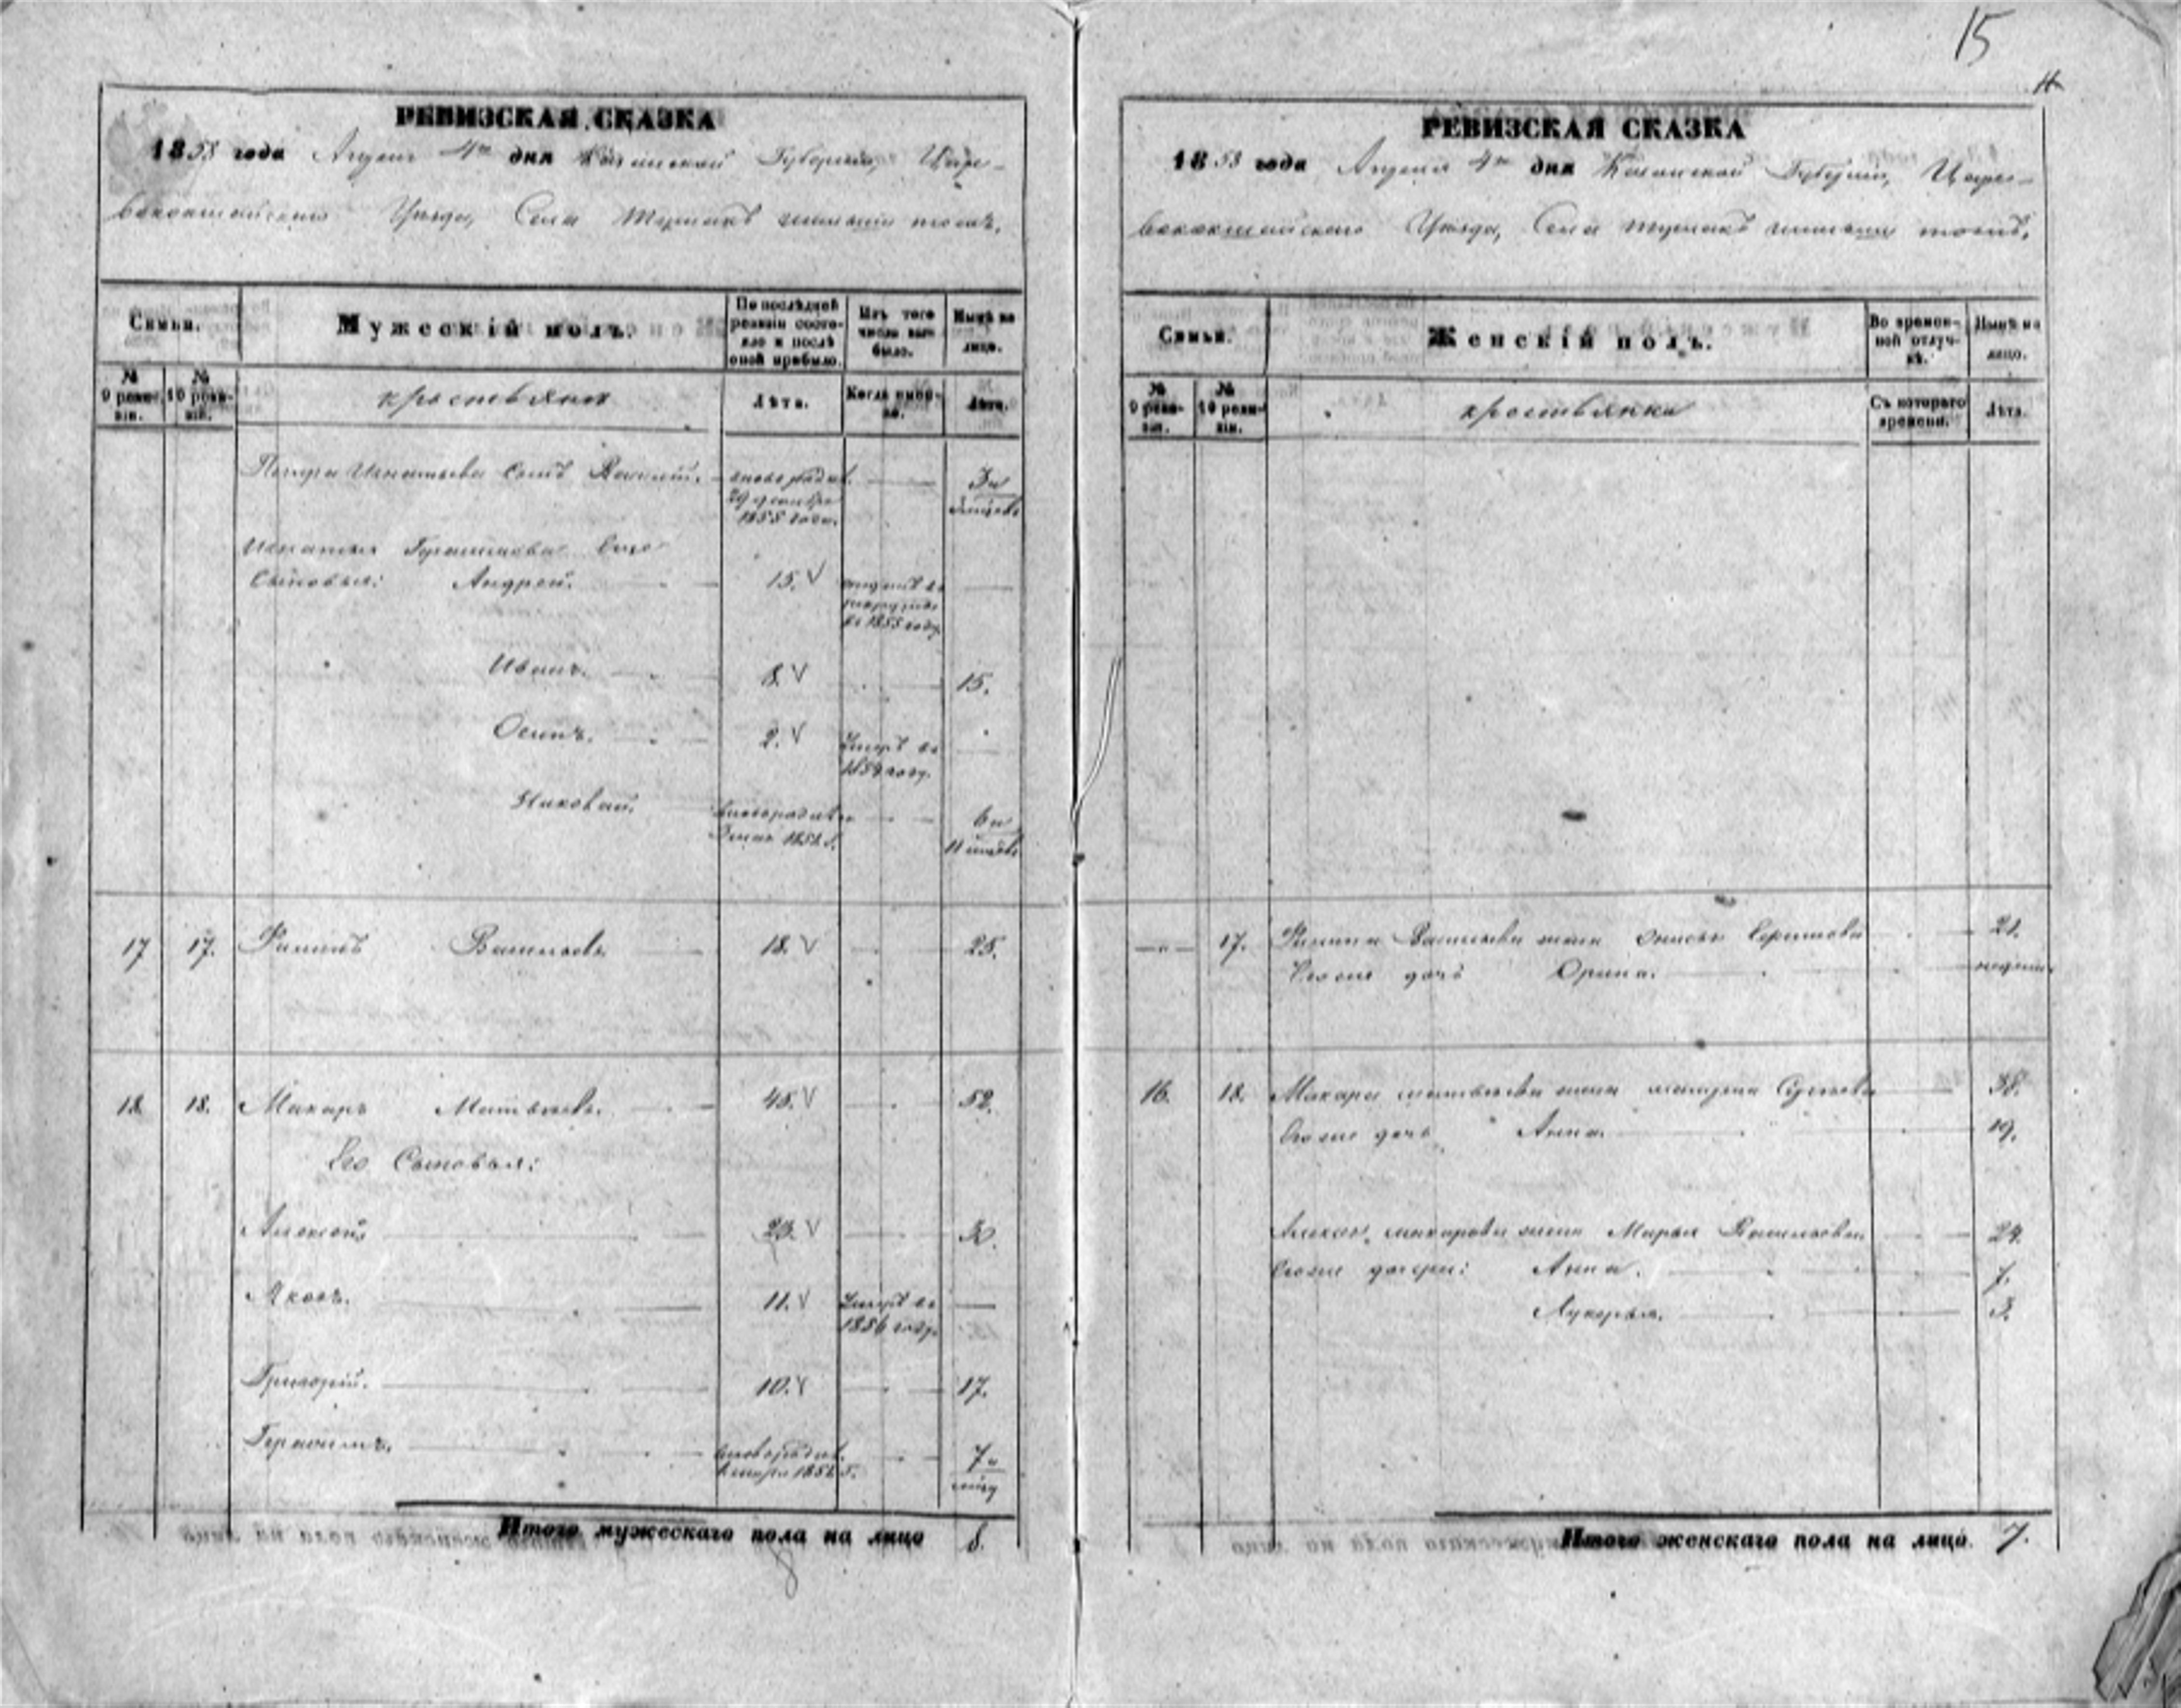 15
РЕВИЗСКАЯ СКАЗКА
1858 года Апреля 4го дня Казанской Губернiи, Царе-
вококшайскаго Уѣзда, Села
Семьи.
Мужескiй полъ.
По послѣдней ревизiи состо-
яло и послѣ оной прибыло.
Изъ того числа вы-
было.
Нынѣ на лицо.
№ 9 ревизiи.
№ 10 реви-
зiи.
крестьяне
Лѣта.
Когда имен-
но.
Лѣта.
Петра Игнатьева сынъ Василiй.
вновь родил.
29 декабря
1855 года.
Игнатья Герасимова
Сыновья: Андрей.
15.
отданъ въ
рекруты
въ 1855 году
Иванъ.
8.
15.
Осипъ.
2.
Умеръ въ
1854 году.
Николай.
6 и
17
17.
Филипъ Васильевъ.
18.
25.
18.
18.
Макаръ Матвѣевъ.
45.
52.
Его Сыновья:
Алексей.
23.
30.
Яковъ.
11.
Умеръ въ
1856 году
Григорiй.
10.
17.
Герасимъ.
7 и
Итого мужескаго пола на лицо 8.
РЕВИЗСКАЯ СКАЗКА
1858 года Апреля 4го дня Казанской Губернiи, Царе-
вококшайскаго Уѣзда, Села
Семьи.
Женскiй полъ.
Во времен-
ной отлуч-
кѣ.
Нынѣ на лицо.
№ 9 реви-
зiи.
№ 10 реви-
зiи.
крестьянки
Съ котораго времени.
Лѣта.
17.
Филипа Васильева жена
21.
Его же дочь Орина.
16.
18.
Макара Матвѣева жена
38.
Его же дочь Анна.
19.
Алексея Макарова жена Марья Васильева
29.
Его же дочери: Анна.
7.
Лукерья.
3.
Итого женскаго пола на лицо. 7.